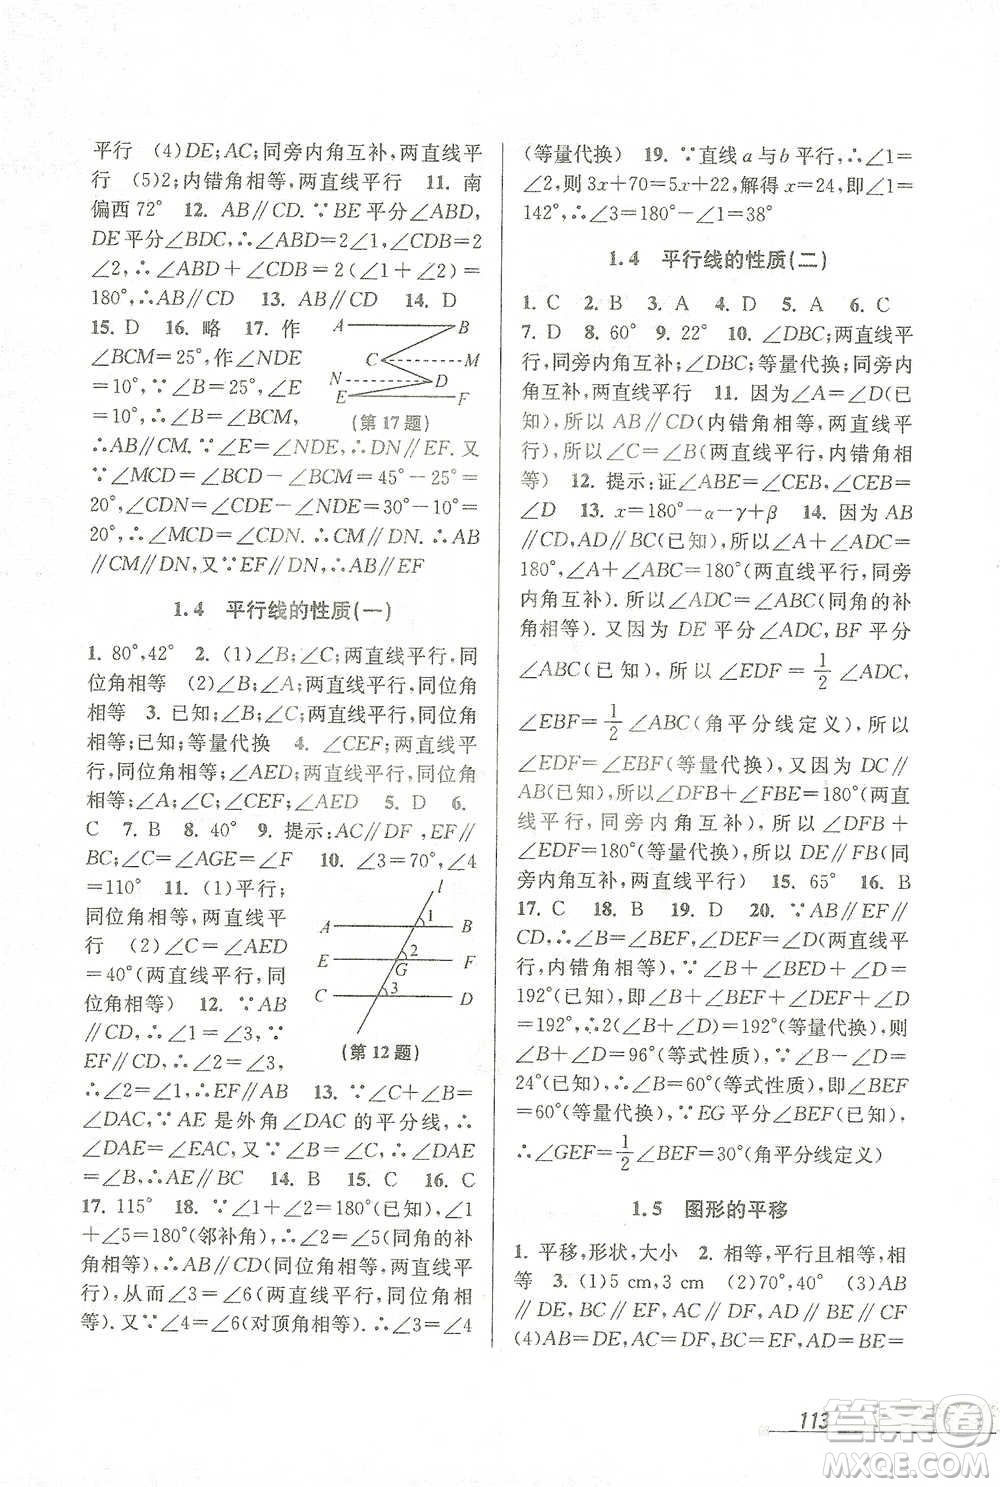 平行　(4)DE;AC;同旁内角互补,两直线平
行　(5)2;内错角相等,两直线平行　11. 南
偏西 72°　12. AB∥CD. ∵BE 平分∠ABD,
DE 平分∠BDC,∴∠ABD=2∠1,∠CDB=2
∠2,∴∠ABD+∠CDB=2(∠1+∠2)=
180°,∴AB∥CD　13. AB∥CD　14. D
15. D　16. 略　17. 作
∠BCM=25°,作∠NDE
=10°,∵∠B=25°,∠E
=10°,∴∠B=∠BCM,
A B
C M
N D
E F
(第 17 题)
∴AB∥CM. ∵∠E=∠NDE,∴DN∥EF. 又
∵∠MCD=∠BCD-∠BCM=45°-25°=
20°,∠CDN=∠CDE-∠NDE=30°-10°=
20°,∴∠MCD=∠CDN,∴CM∥DN. ∴AB
∥CM∥DN,又∵EF∥DN,∴AB∥EF
1.4　平行线的性质(一)
1. 80°,42°　2. (1)∠B;∠C;两直线平行,同
位角相等　(2)∠B;∠A;两直线平行,同位角
相等　3. 已知;∠B;∠C;两直线平行,同位角
相等;已知;等量代换　4. ∠CEF;两直线平
行,同位角相等;∠AED;两直线平行,同位角
相等;∠A;∠C;∠CEF;∠AED　5. D　6.
C　7. B　8. 40°　9. 提示:AC∥DF ,EF∥
BC;∠C=∠AGE=∠F　10. ∠3=70°,∠4
=110°　11. (1)平行;
同位角相等,两直线平
行　(2)∠C=∠AED
=40°(两直线平行,同
位角相等)　12. ∵AB
∥CD,∴∠1=∠3,∵
EF∥CD,∴∠2=∠3,
l
A 1 B
E 2 F
G
C 3 D
(第 12 题)
∴∠2=∠1,∴EF∥AB　13. ∵∠C+∠B=
∠DAC,∵AE 是外角∠DAC 的平分线,∴
∠DAE=∠EAC,又∵∠B=∠C,∴∠DAE
=∠B,∴AE∥BC　14. B　15. C　16. C
17. 115°　18. ∵∠1+∠2=180°(已知),∠1
+∠5=180°(邻补角),∴∠2=∠5(同角的补
角相等),∴AB∥CD(同位角相等,两直线平
行),从而∠3=∠6(两直线平行,同位角相
等). 又∵∠4=∠6(对顶角相等),∴∠3=∠4
(等量代换)　19. ∵直线 a 与 b 平行,∴∠1=
∠2,则 3x+70=5x+22,解得 x=24,即∠1=
142°,∴∠3=180°-∠1=38°
1.4　平行线的性质(二)
1. C　2. B　3. A　4. D　5. A　6. C
7. D　8. 60°　9. 22°　10. ∠DBC;两直线平
行,同旁内角互补;∠DBC;等量代换;同旁内角
互补,两直线平行　11. 因为∠A=∠D(已
知),所以 AB∥CD(内错角相等,两直线平行),
所以∠C=∠B(两直线平行,内错角相
等)　12. 提示:证∠ABE=∠CEB,∠CEB=
∠D　13. x=180°-α-γ+β　14. 因为 AB
∥CD,AD∥BC(已知),所以∠A+∠ADC=
180°,∠A+∠ABC=180°(两直线平行,同旁
内角互补). 所以∠ADC=∠ABC(同角的补
角相等). 又因为 DE 平分∠ADC,BF 平分
∠ABC(已知),所以∠EDF=1/2∠ADC,
∠EBF=1/2∠ABC(角平分线定义),所以
∠EDF=∠EBF(等量代换),又因为 DC∥
AB(已知),所以∠DFB+∠FBE=180°(两直
线平行,同旁内角互补),所以∠DFB+
∠EDF=180°(等量代换),所以 DE∥FB(同旁
内角互补,两直线平行)　15. 65°　16. B
17. C　18. B　19. D　20. ∵AB∥EF∥
CD,∴∠B=∠BEF,∠DEF=∠D(两直线平
行,内错角相等),∵∠B+∠BED+∠D=
192°(已知),即∠B+∠BEF+∠DEF+∠D
=192°,∴2(∠B+∠D)=192°(等量代换),则
∠B+∠D=96°(等式性质),∵∠B-∠D=
24°(已知),∴∠B=60°(等式性质),即∠BEF
=60°(等量代换),∵EG 平分∠BEF(已知),
∴∠GEF=1/2∠BEF=30°(角平分线定义)
1.5　图形的平移
1. 平移,形状,大小　2. 相等,平行且相等,相
等　3. (1)5 cm,3 cm　(2)70°,40°　(3)AB
∥DE,BC∥EF,AC∥DF,AD∥BE∥CF
(4)AB=DE,AC=DF,BC=EF,AD=BE=
113
答案圈
MXQE.COM